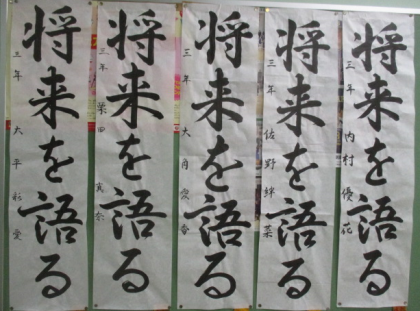 将来を語る
三年 内村優花
将来を語る
三年 佐野絆菜
将来を語る
三年 大
将来を語る
三年
将来を語る
三年 大平